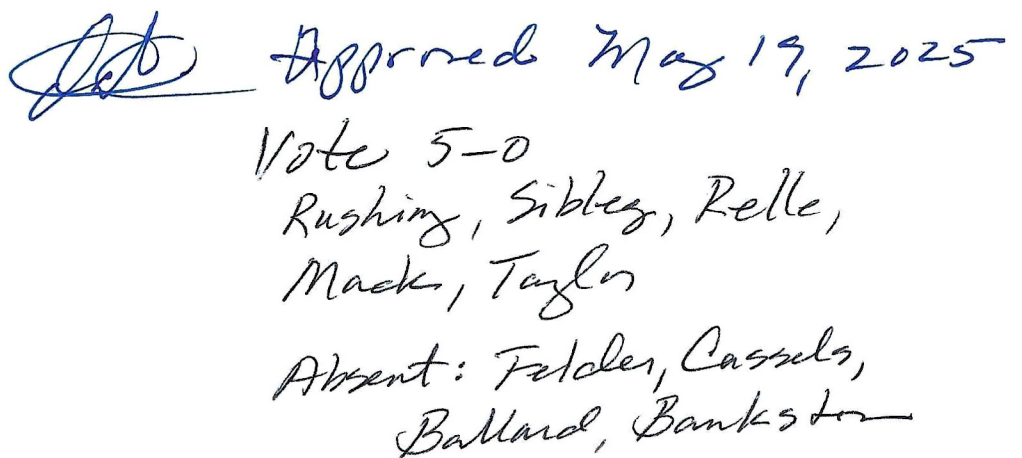 Approved May 19, 2025
Vote 5-0
Rushing, Sibley, Relle,
Mack, Taylor
Absent: Felder, Cassels,
Ballard, Bankston